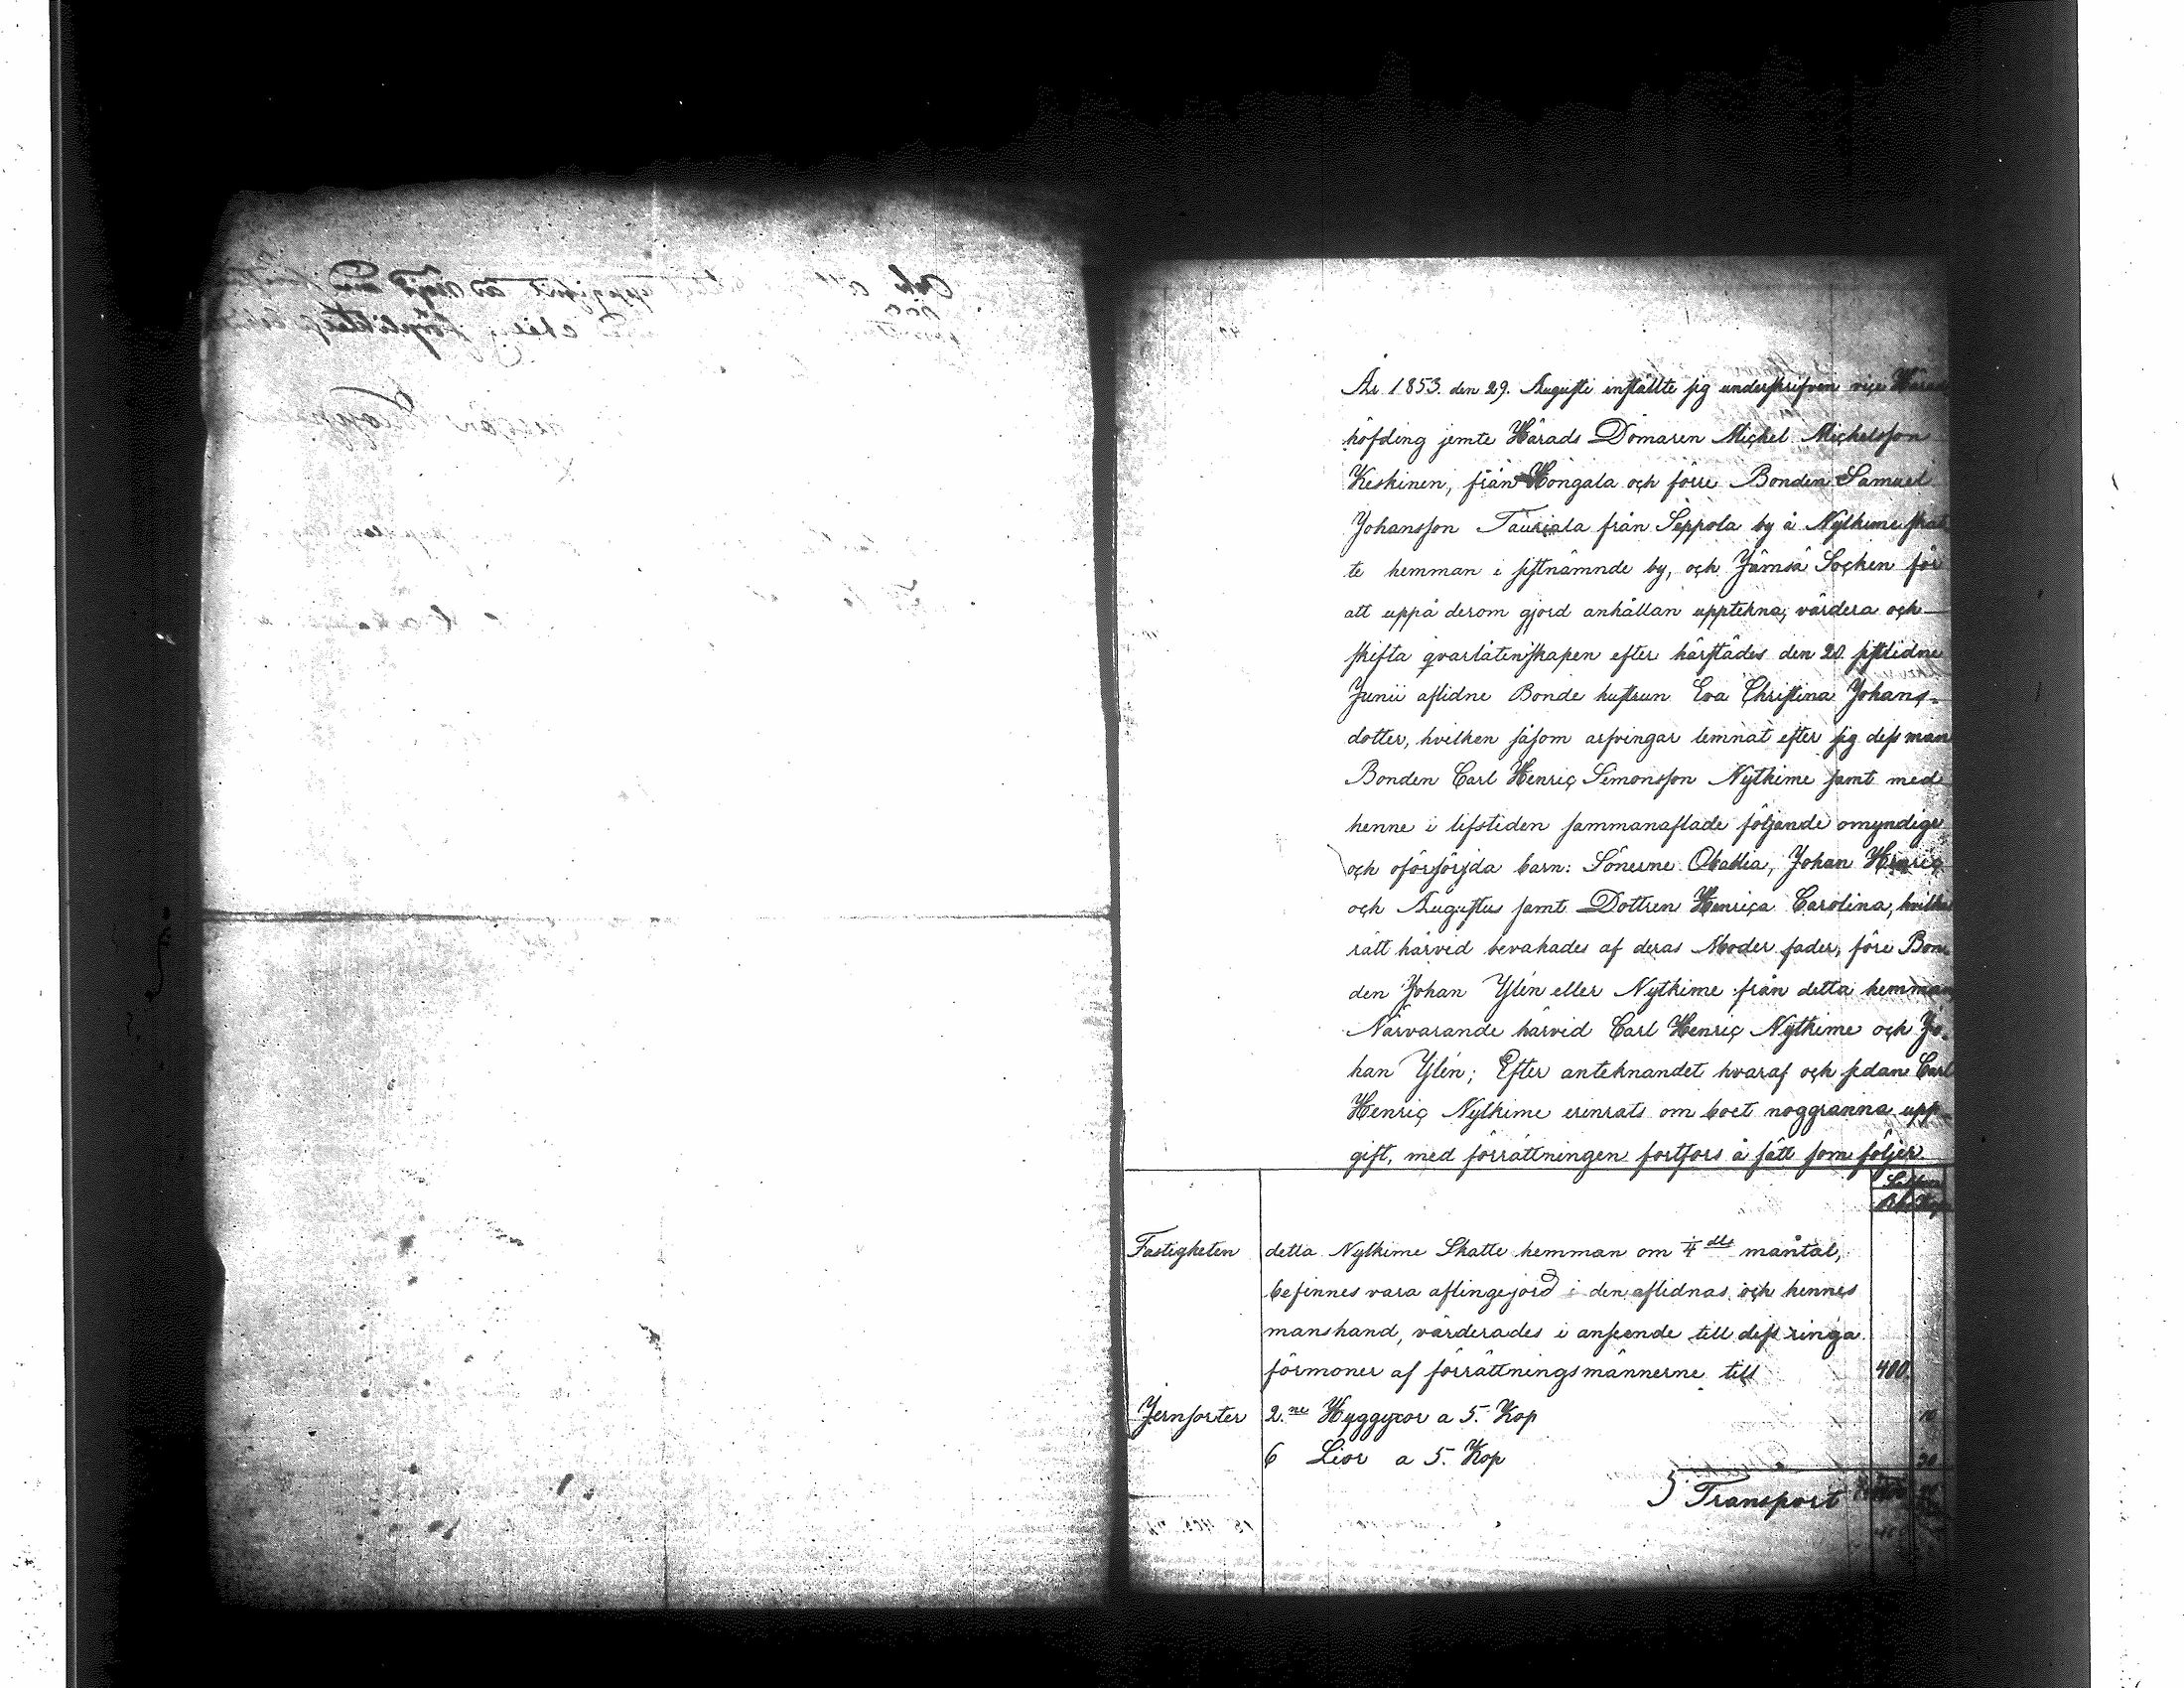 År 1853. den 29. Augusti inställte sig underskrifven viçe Härads
höfding jemte Härads Domaren Miçhel Miçhelsson
Keskinen, från Hongala oçh förre Bonden Samuel
Johansson Tauriala från Seppola by å Nytkime skat
te hemman i sistnämnde by, oçh Jämsä Soçken för
att uppå derom gjord anhållan upptekna, värdera oçh
skifta qvarlåtenskapen efter härstädes den 20 sistlidne
Junii aflidne Bonde hustrun Eva Christina Johans-
dotter, hvilken såsom arfvingar lemnat efter sig dess man
Bonden Carl Henriç Simonsson Nytkime samt med
henne i lifstiden sammanaflade följande omyndige
oçh oförsörjda barn: Sönerne Obadia, Johan Henriç
oçh Augustus samt Dottren Henriça Carolina, hvilkas
rätt härvid bevakades af deras Moder fader, före Bon-
den Johan Ylén eller Nytkime från detta hemman
Närvarande härvid Carl Henriç Nytkime oçh Jo-
han Ylén; Efter anteknandet hvaraf oçh sedan Carl
Henriç Nytkime erinrats om boet noggranna upp-
gift, med förrättningen fortfors å sätt som följer.
Fastigheten detta Nytkime Skatte hemman om 1/4 dls mantal,
befinnes vara aflingejord i den aflidnas oçh hennes
manshand, värderades i anseende till dess ringa
förmoner af förrättningsmännerne till 400.
Jernsorter 2.ne Hyggyxor a 5. Kop 10
6 Lior a 5. Kop 30
Transport